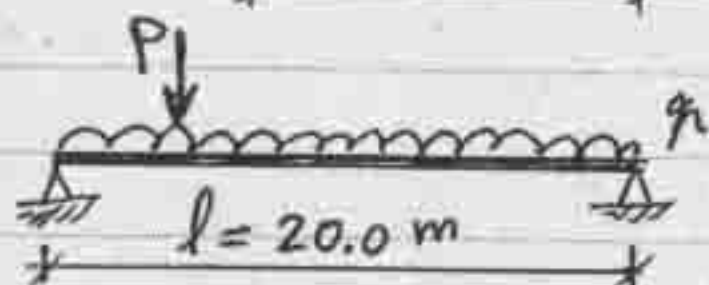 P
l = 20.0 m